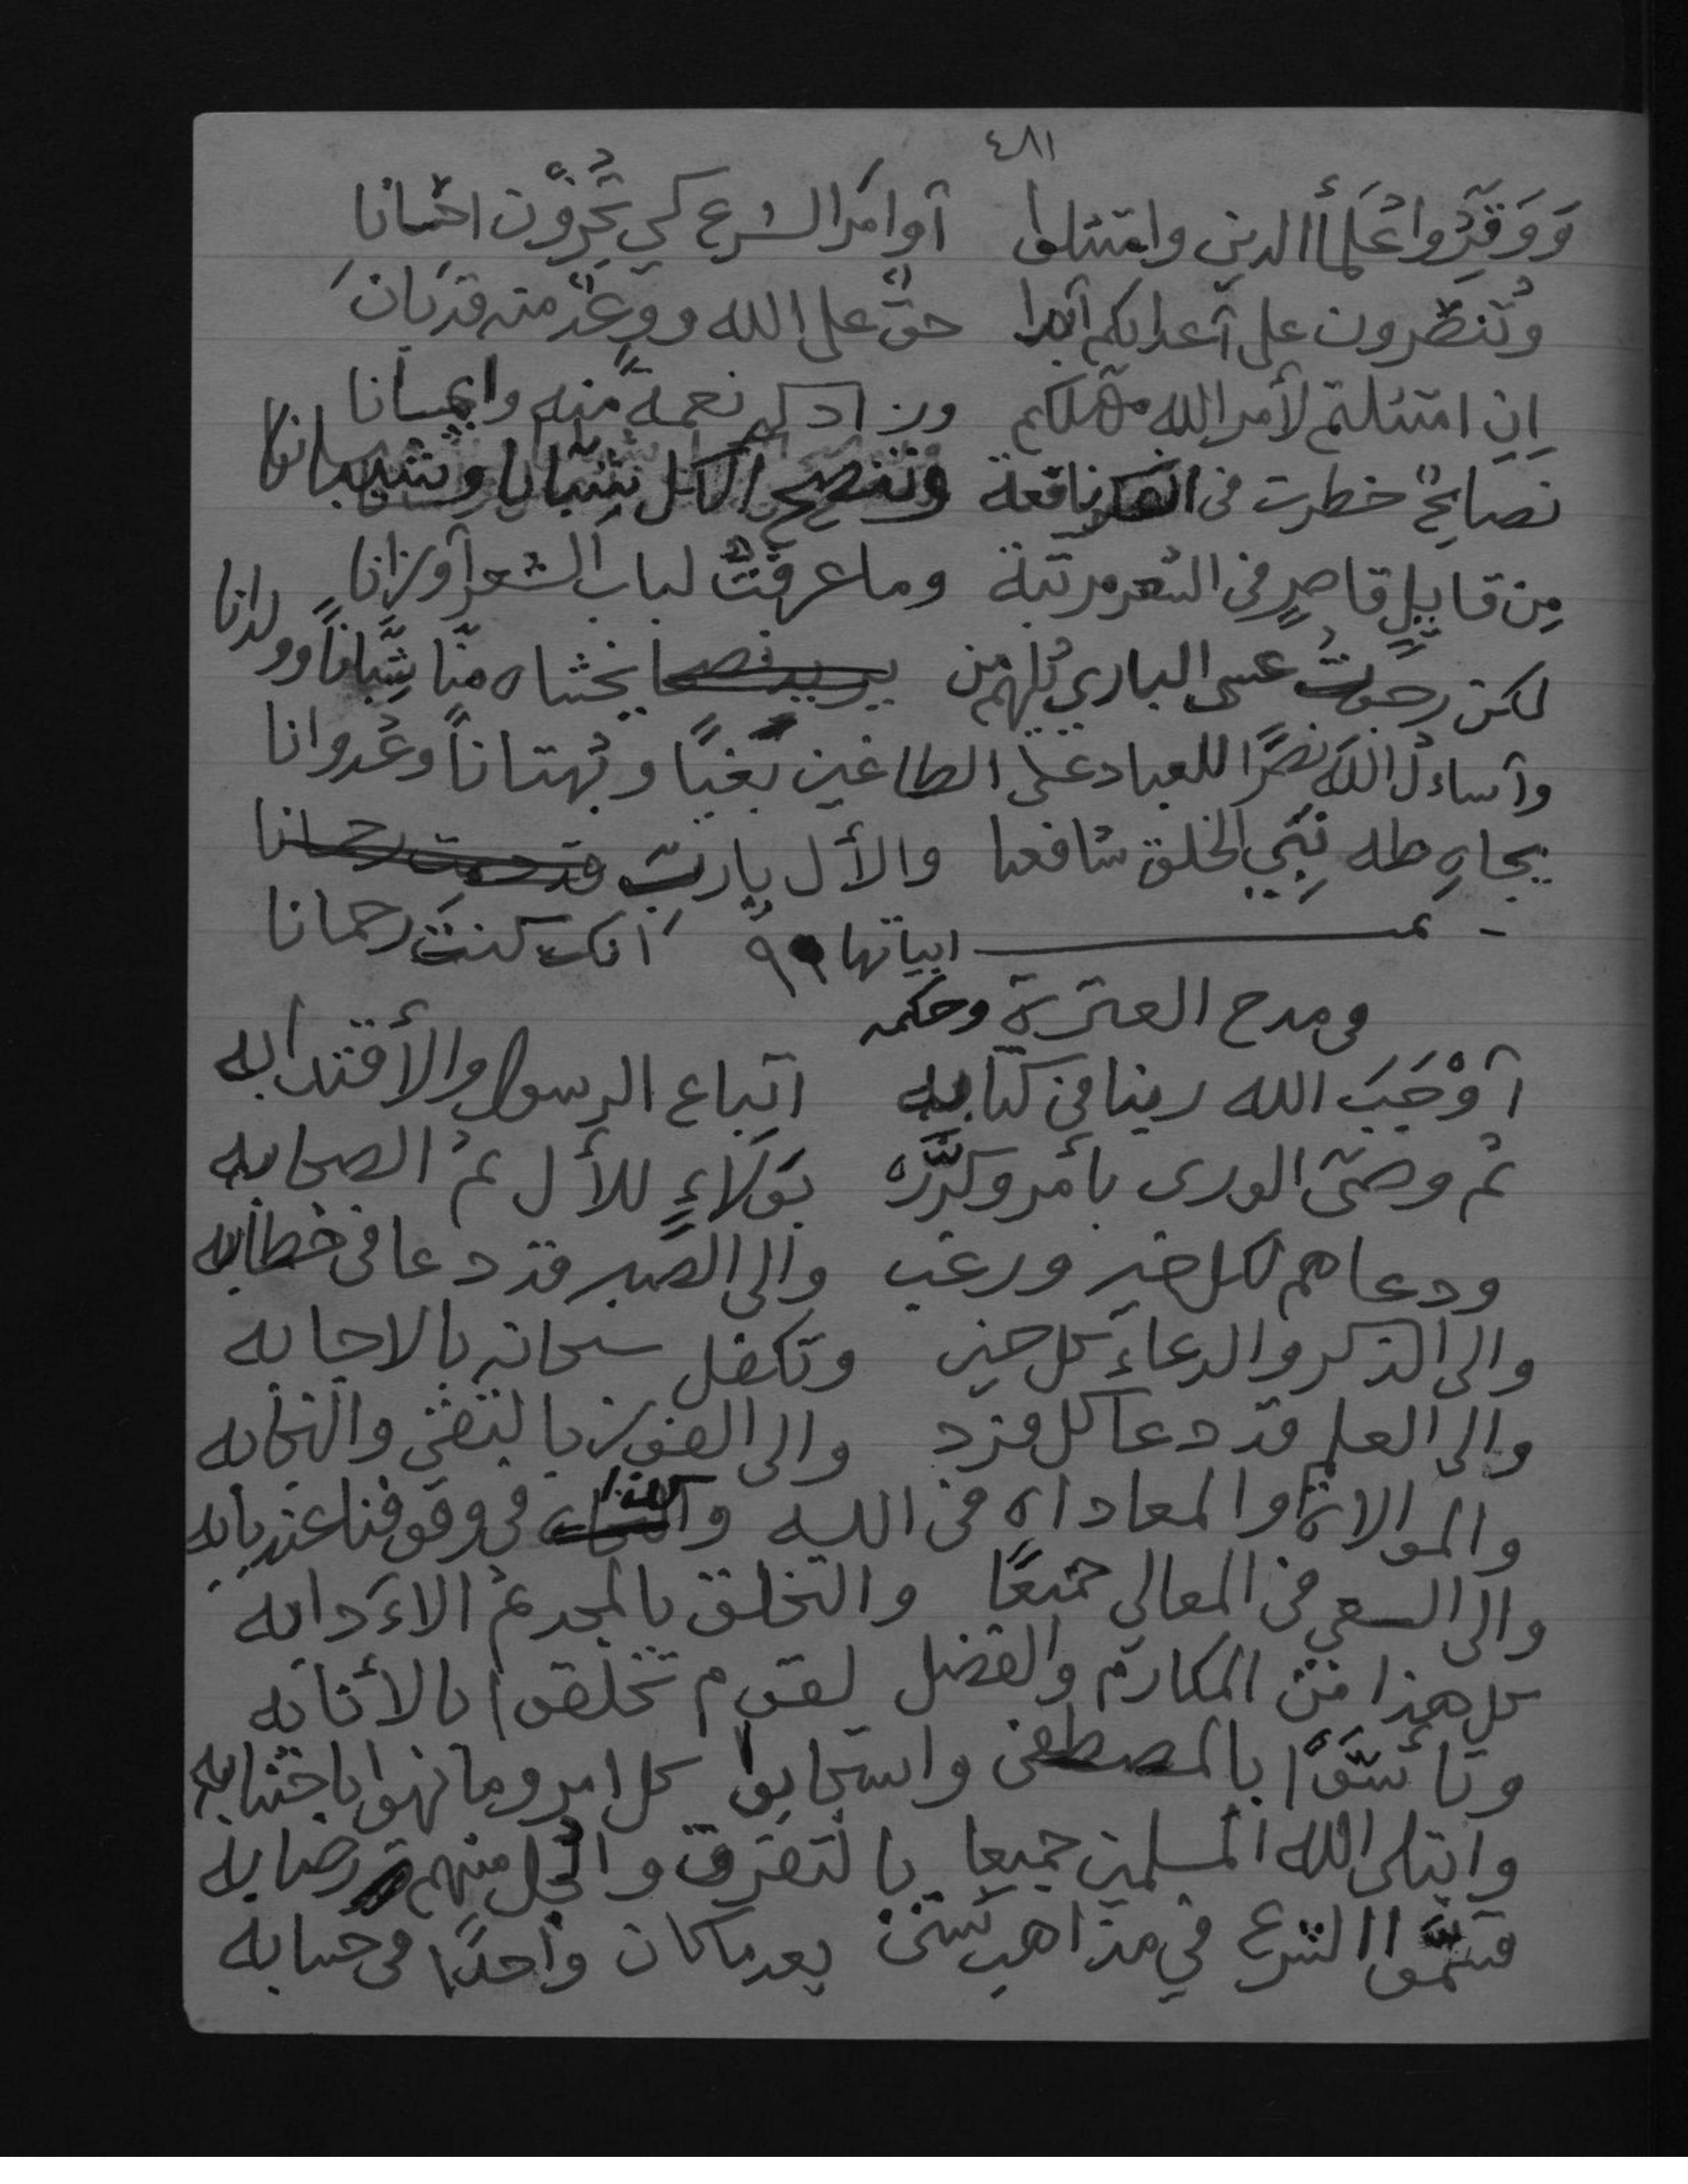 ٤٨١
وَوَقِّرُوا عُلَمأ الدين وامتثلوا أوامرَ الشرع كي تُجزَوْن احسانا
وتُنصَرون على أعدايكم أبدا حقٌّ على الله ووعدٌ منه قد بانَ
إن امتثلتم لأمر الله مهلكم وزادكم نعمةً منه وإيمانا
نصايحٌ خطرت في الفكر نافعة وتنصح الكل شبانا وشيبانا
مِن قايلٍ قاصرٍ في الشعر مرتبة وما عرفتُ لباب الشعر أوزانا
لكن رجوتُ عسى الباري يُلهم من يريد نصحا يخشاه منّا شِبَّاناً وولدانا
وأساءلُ اللهَ نصرًا للعباد على الطاغين بَغيًا وبُهتاناً وعُدوانا
بجاهِ طه نبيِ الخلق شافعنا والأل يا ربِّ قد رحمانا
تمـ ابياتها ٩٩ انك كنتَ رحمانا
في مدح العترة وحكمه
أوْجَبَ الله ربنا في كتابه اتباع الرسول والأقتدا به
ثم وصّى الورى بأمر وكرَّره بوَلاءٍ للأل ثمُ الصحابه
ودعاهم لكل خير ورغب والى الصبر قد دعا في خطابه
والى الذكر والدعاء كل حين وتكفل سبحانه بالاجابه
والى العلم قد دعا كل فرد والى الفوز بالتقى والنجابه
والموالاة والمعاداه في الله والثناء في وقوفنا عند بابه
والى السعي في المعالي جميعًا والتخلق بالمجد ثم الاءَدابه
كل هذا من المكارم والفضل لقوم تخلقوا بالأنابه
وتأسَّوا بالمصطفى واستجابوا كل امر وما نهوا باجتنابه
وابتلى الله المسلمين جميعا بالتفرق والجل منهم رضا به
قسَّموا الشرع في مذاهب شتى بعد ما كان واحدًا في حسابه